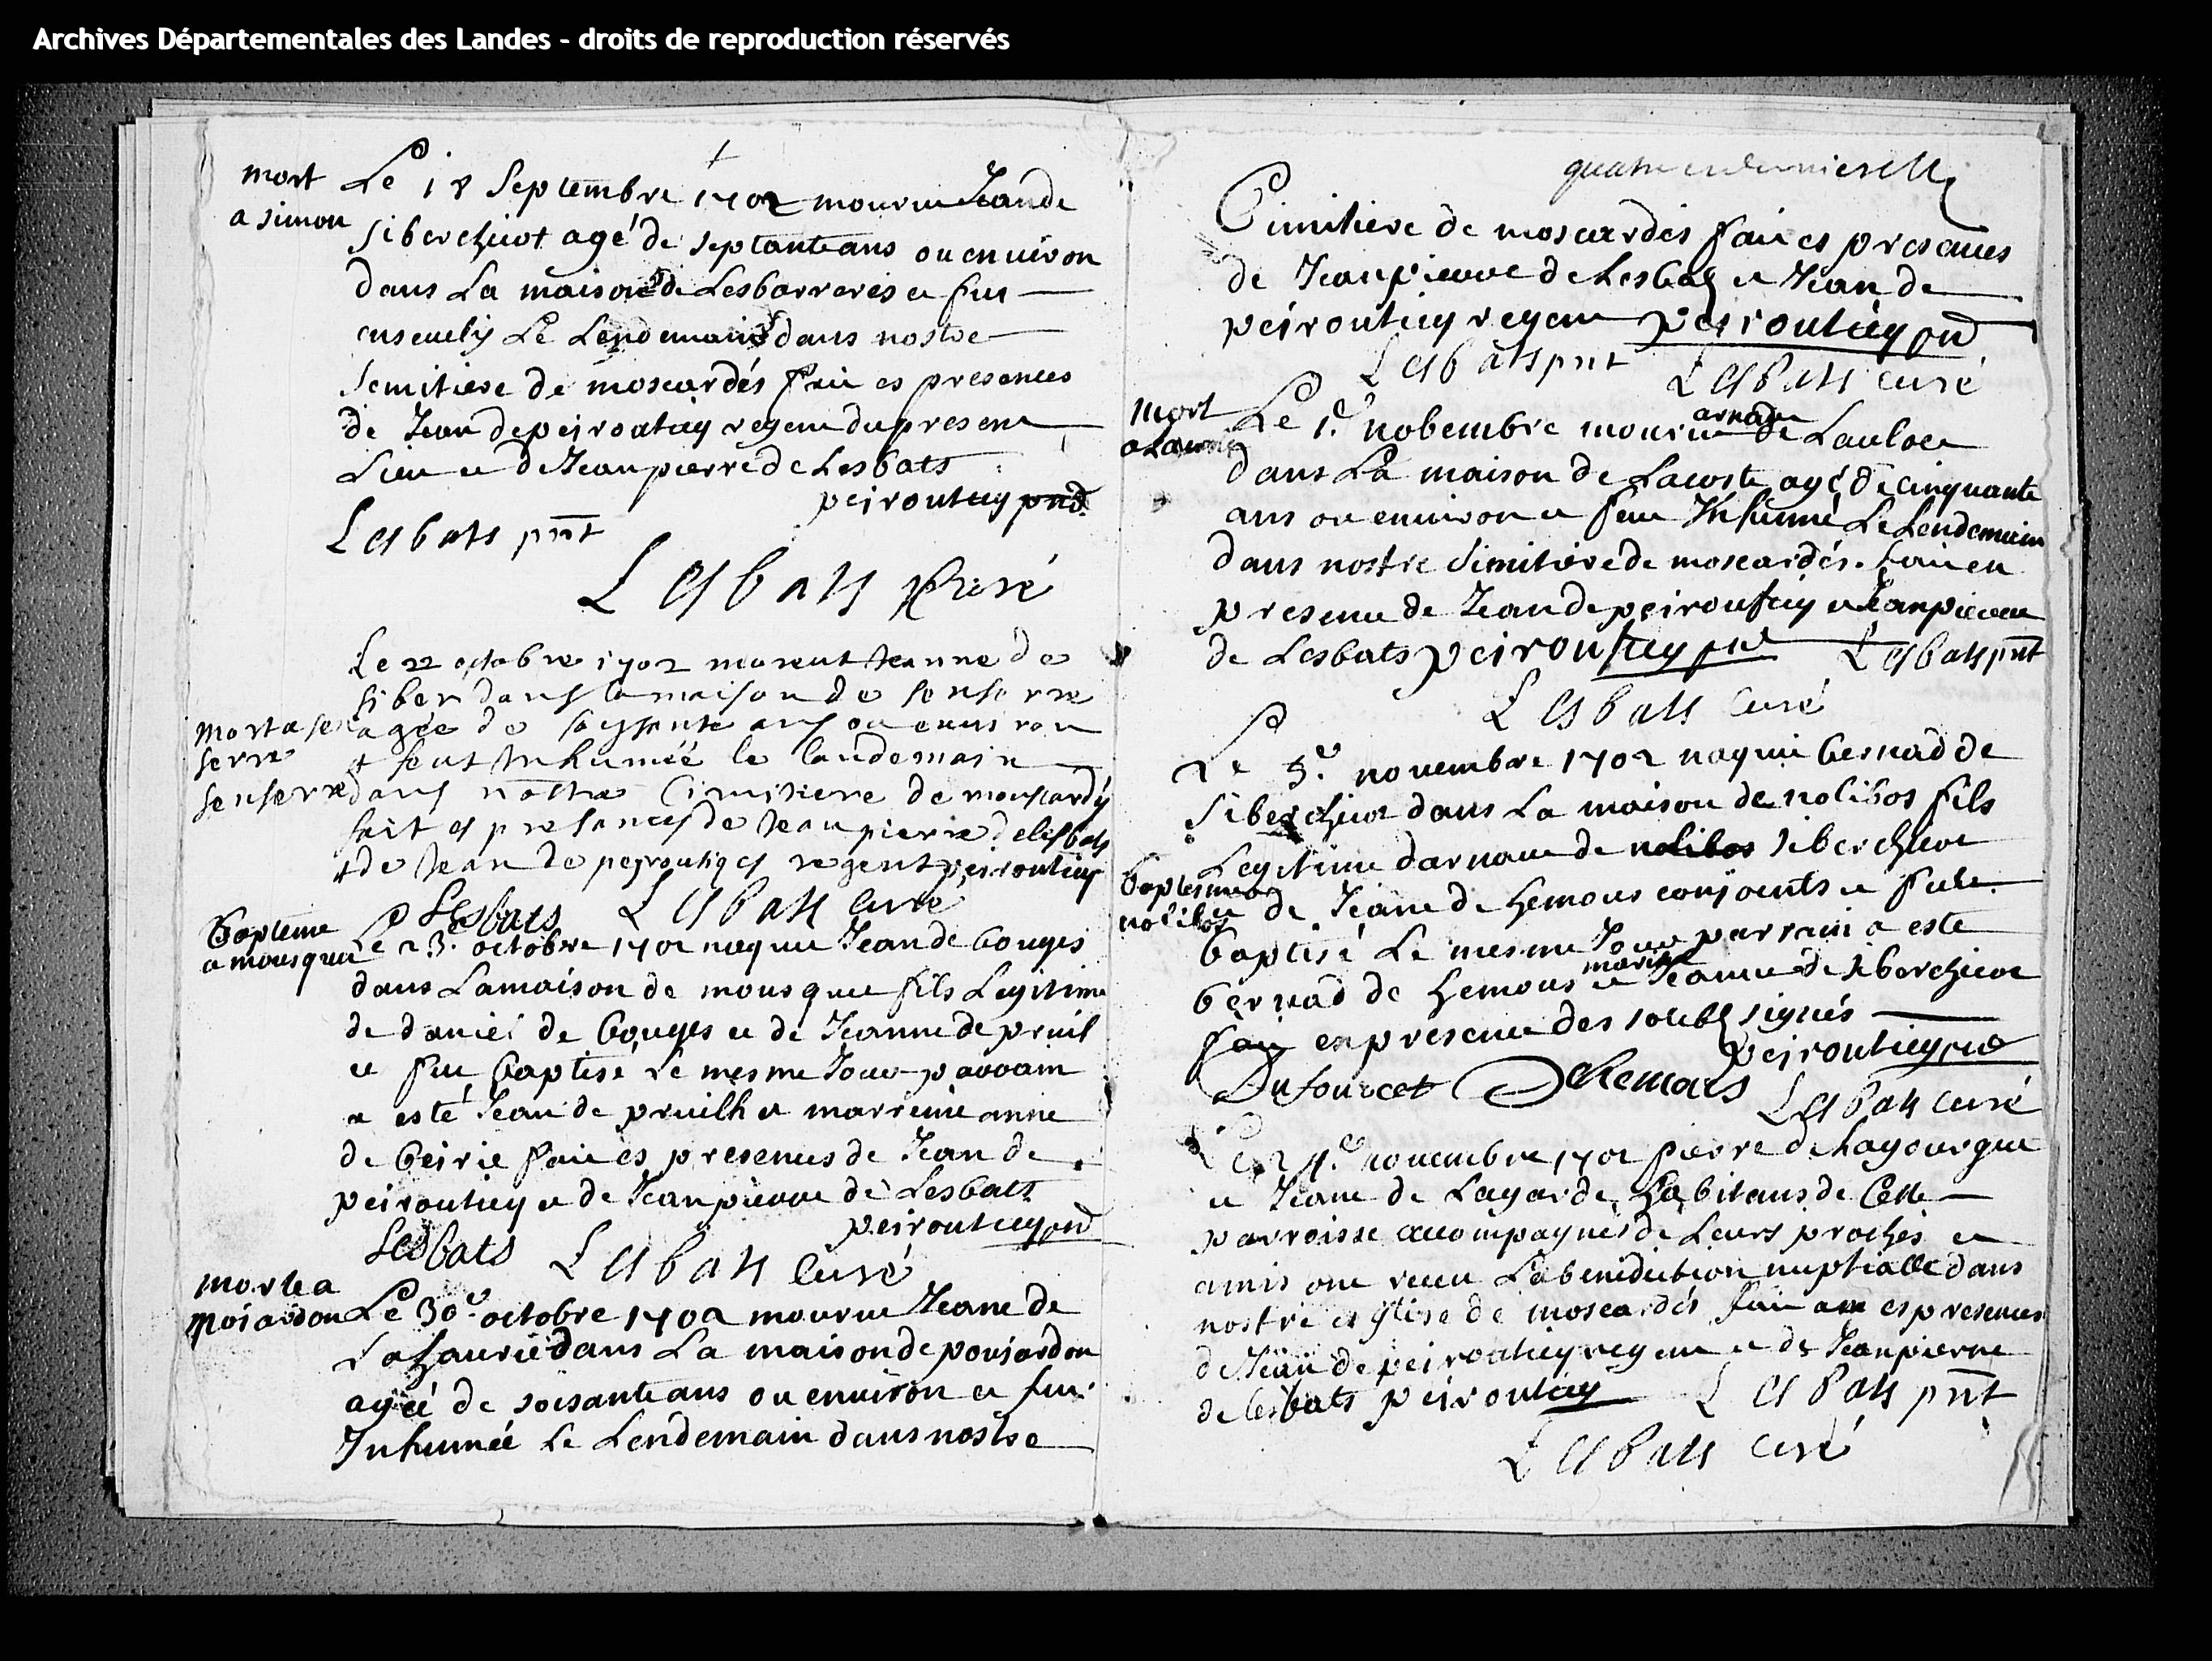 Archives Départementales des Landes - droits de reproduction réservés
mort
a simon
Le 18 Septembre 1702 mouru Jean de
siberchicot agé de septante ans ou environ
dans La maison de Lesbarreres et fut
ensevely Le Lendemain dans nostre
semitiere de moscardés fait es presences
de Jean de peiroutuy regent du present
Lieu et de Jean pierre de Lesbats
peiroutuy pnt
Lesbats pnt
Lesbats curé
mort a sen
serre
senserre
Le 22 octobre 1702 morent Jeanne de
siber dans la maison de senserre
agée de soissante ans ou environ
et feut Inhumée le landemain
dans nostre Cimitiere de mouscardy
fait es presances de Jean pierre de lesbats
et de Jean de peyroutiq es regent peiroutuy
Lesbats Lesbats curé
Bapteme
a mousquer
Le 23e octobre 1702 naquit Jean de bouges
dans La maison de mousquer fils Legitime
de daniel de bouges et de Jeanne de pruil
et fut baptisé Le mesme Jour parrain
a esté Jean de pruilh et marreine anne
de beirie fait es presences de Jean de
peiroutuy et de Jean pierre de Lesbats
peiroutuy pnt
Lesbats Lesbats curé
morte a
Le 30e octobre 1702 mourut Jeane de
Lahaurie dans La maison de poujardon
agéé de soisante ans ou environ et fut
Inhumée Le Lendemain dans nostre
Cimitiere de moscardés fait es presences
de Jean pierre de Lesbats et Jean de
peiroutuy regent peiroutuy pnt
Lesbats pnt Lesbats curé
mort
Le 1er nobembre mourut arnaud de Lauloer
dans La maison de Lacoste agé de cinquante
ans ou environ et feut Inhumé Le Lendemain
dans nostre simitiere de moscardés. fait en
presence de Jean de peiroutuy et Jean pierre
de Lesbats peiroutuy pnt Lesbats pnt
Lesbats Curé
Le 3e novembre 1702 naquit bernad de
siberchicot dans La maison de nolibos fils
Legitime darnaud de nolibos siberchicot
baptesme a
nolibos
et de Jeane de hemous conjoents et fut
baptisé Le mesme Jour parrain a esté
bernad de hemous et marine Jeanne de siberchicot
fait en presence des soubs signés
peiroutuy pnt
Dufourcet Dehemous Lesbats curé
novembre 1702 pierre de Lagourgue
et Jeane de Lagarde habitans de Cette
parroisse accompagnés de Leurs proches et
amis ont receu La benediction nuptialle dans
nostre esglise de moscardés fait es presences
de Jean de peiroutuy regent et de Jean pierre
de lesbats peiroutuy Lesbats pnt
Lesbats curé